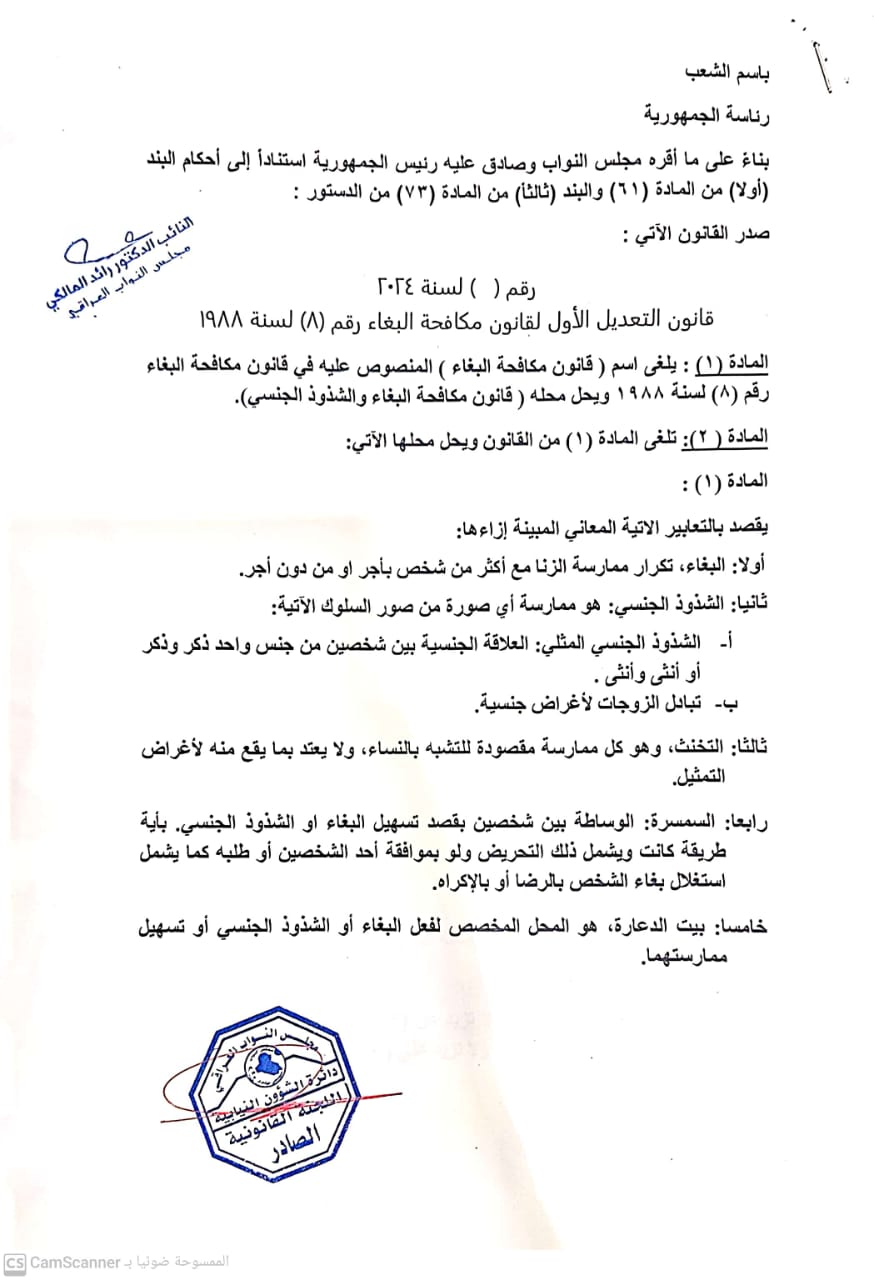 باسم الشعب
رئاسة الجمهورية
بناءً على ما أقره مجلس النواب وصادق عليه رئيس الجمهورية استناداً إلى أحكام البند
(أولا) من المادة (٦١) والبند (ثالثاً) من المادة (٧٣) من الدستور :
صدر القانون الآتي :
النائب الدكتور رائد المالكي
مجلس النواب العراقي
رقم ( ) لسنة ٢٠٢٤
قانون التعديل الأول لقانون مكافحة البغاء رقم (٨) لسنة ١٩٨٨
المادة (١) : يلغى اسم ( قانون مكافحة البغاء ) المنصوص عليه في قانون مكافحة البغاء
رقم (٨) لسنة ١٩٨٨ ويحل محله ( قانون مكافحة البغاء والشذوذ الجنسي).
المادة ( ٢): تلغى المادة (١) من القانون ويحل محلها الآتي:
المادة (١) :
يقصد بالتعابير الاتية المعاني المبينة إزاءها:
أولا: البغاء، تكرار ممارسة الزنا مع أكثر من شخص بأجر او من دون أجر.
ثانيا: الشذوذ الجنسي: هو ممارسة أي صورة من صور السلوك الآتية:
أ- الشذوذ الجنسي المثلي: العلاقة الجنسية بين شخصين من جنس واحد ذكر وذكر
أو أنثى وأنثى .
ب- تبادل الزوجات لأغراض جنسية.
ثالثا: التخنث، وهو كل ممارسة مقصودة للتشبه بالنساء، ولا يعتد بما يقع منه لأغراض
التمثيل.
رابعا: السمسرة: الوساطة بين شخصين بقصد تسهيل البغاء او الشذوذ الجنسي. بأية
طريقة كانت ويشمل ذلك التحريض ولو بموافقة أحد الشخصين أو طلبه كما يشمل
استغلال بغاء الشخص بالرضا أو بالإكراه.
خامسا: بيت الدعارة، هو المحل المخصص لفعل البغاء أو الشذوذ الجنسي أو تسهيل
ممارستهما.
مجلس النواب العراقي
دائرة الشؤون النيابية
اللجنة القانونية
الصادر
الممسوحة ضوئيا بـ CamScanner
CS